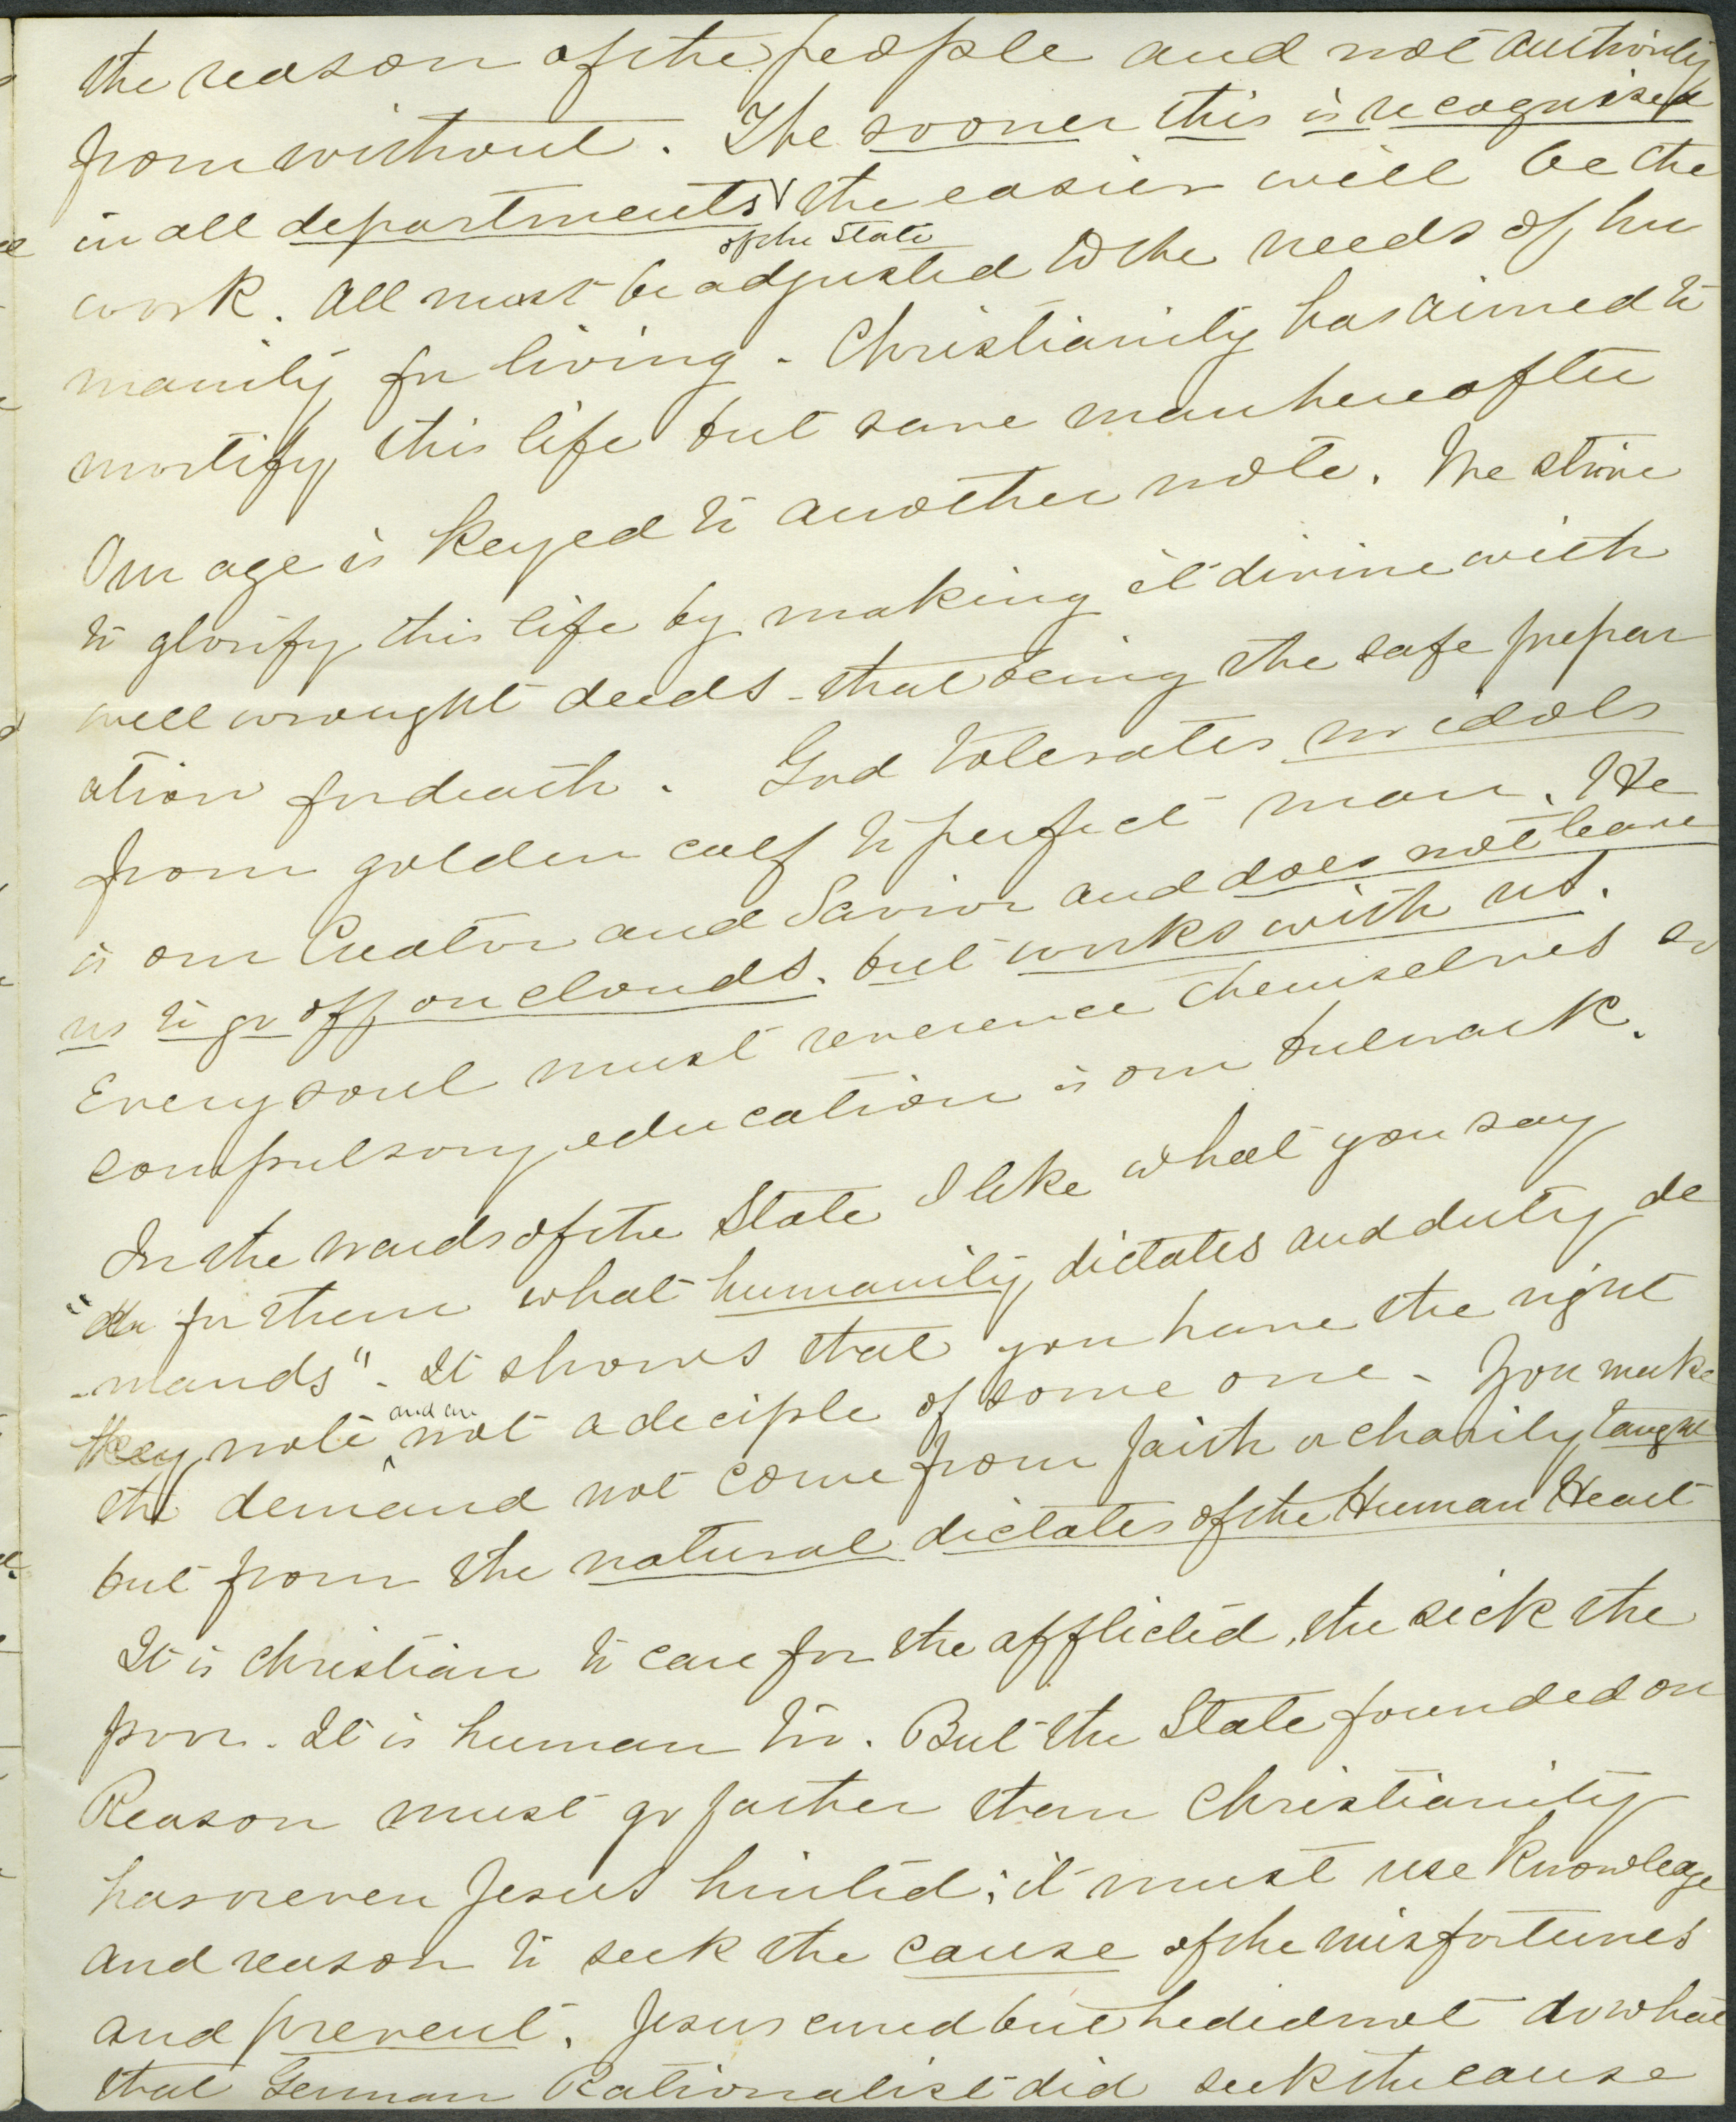 the reason of the people and not authority
from without. The sooner this is recognized
in all departments of the State the easier will be the
work. All must be adjusted to the needs of hu
manity for living. Christianity has aimed to
mortify this life but save man hereafter
Our age is keyed to another note. We strive
to glorify this life by making it divine with
well wrought deeds - that being the safe prepar
ation for death. God tolerates no idols
from golden calf to perfect man. He
is our Creator and Savior and does not leave
us to go off on clouds. but works with us.
Every soul must reverence themselves so
compulsory education is our bulwark.
In the wards of the State I like what you say
"do for them what humanity dictates and duty de
-mands". It shows that you have the right
key note and are not a deciple of some one. You make
the demand not come from faith or charity taught
but from the natural dictates of the Human Heart
It is christian to care for the afflicted, the sick the
poor. It is human too. But the State founded on
Reason must go farther than Christianity
has or even Jesus hinted; it must use knowledge
and reason to seek the cause of the misfortunes
and prevent. Jesus cured but he did not do what
that German Rationalist did seek the cause